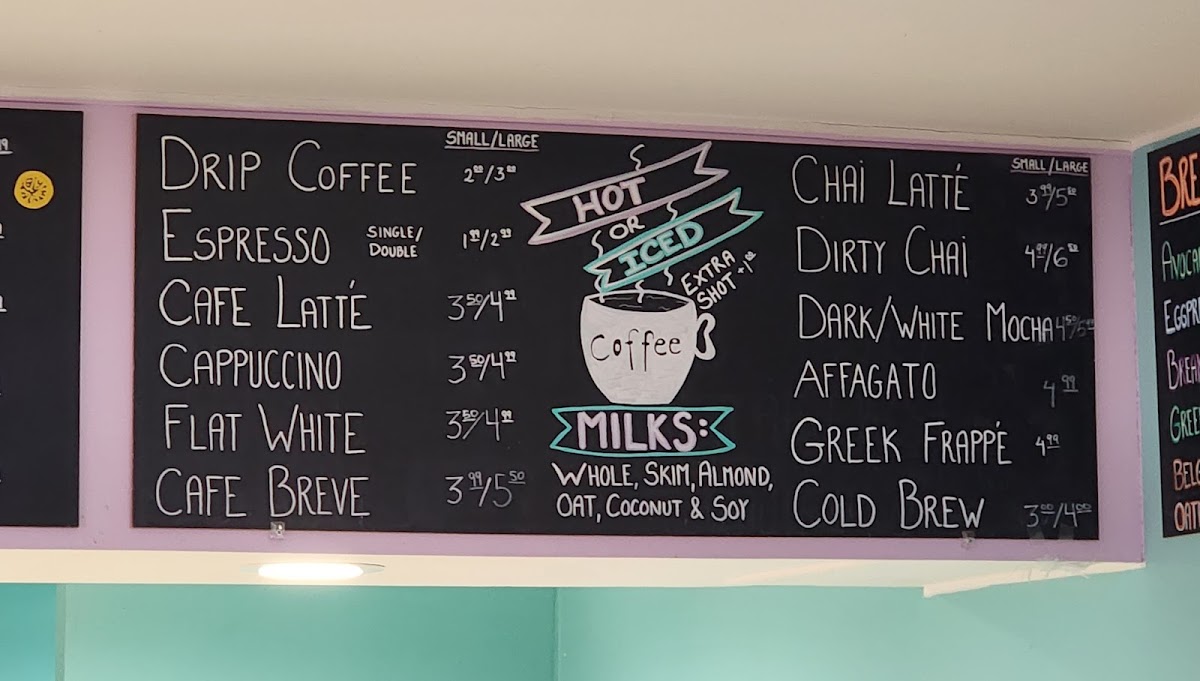 SMALL/LARGE
DRIP COFFEE 2⁰⁰/3⁰⁰
ESPRESSO SINGLE/DOUBLE 1⁹⁹/2⁹⁹
CAFE LATTÉ 3⁵⁰/4⁹⁹
CAPPUCCINO 3⁵⁰/4⁹⁹
FLAT WHITE 3⁵⁰/4⁹⁹
CAFE BREVE 3⁹⁹/5⁵⁰
HOT
OR
ICED
EXTRA
SHOT +1⁰⁰
Coffee
MILKS:
WHOLE, SKIM, ALMOND,
OAT, COCONUT & SOY
SMALL/LARGE
CHAI LATTÉ 3⁹⁹/5⁵⁰
DIRTY CHAI 4⁹⁹/6⁵⁰
DARK/WHITE MOCHA
AFFAGATO 4⁹⁹
GREEK FRAPPÉ 4⁹⁹
COLD BREW 3⁰⁰/4⁰⁰